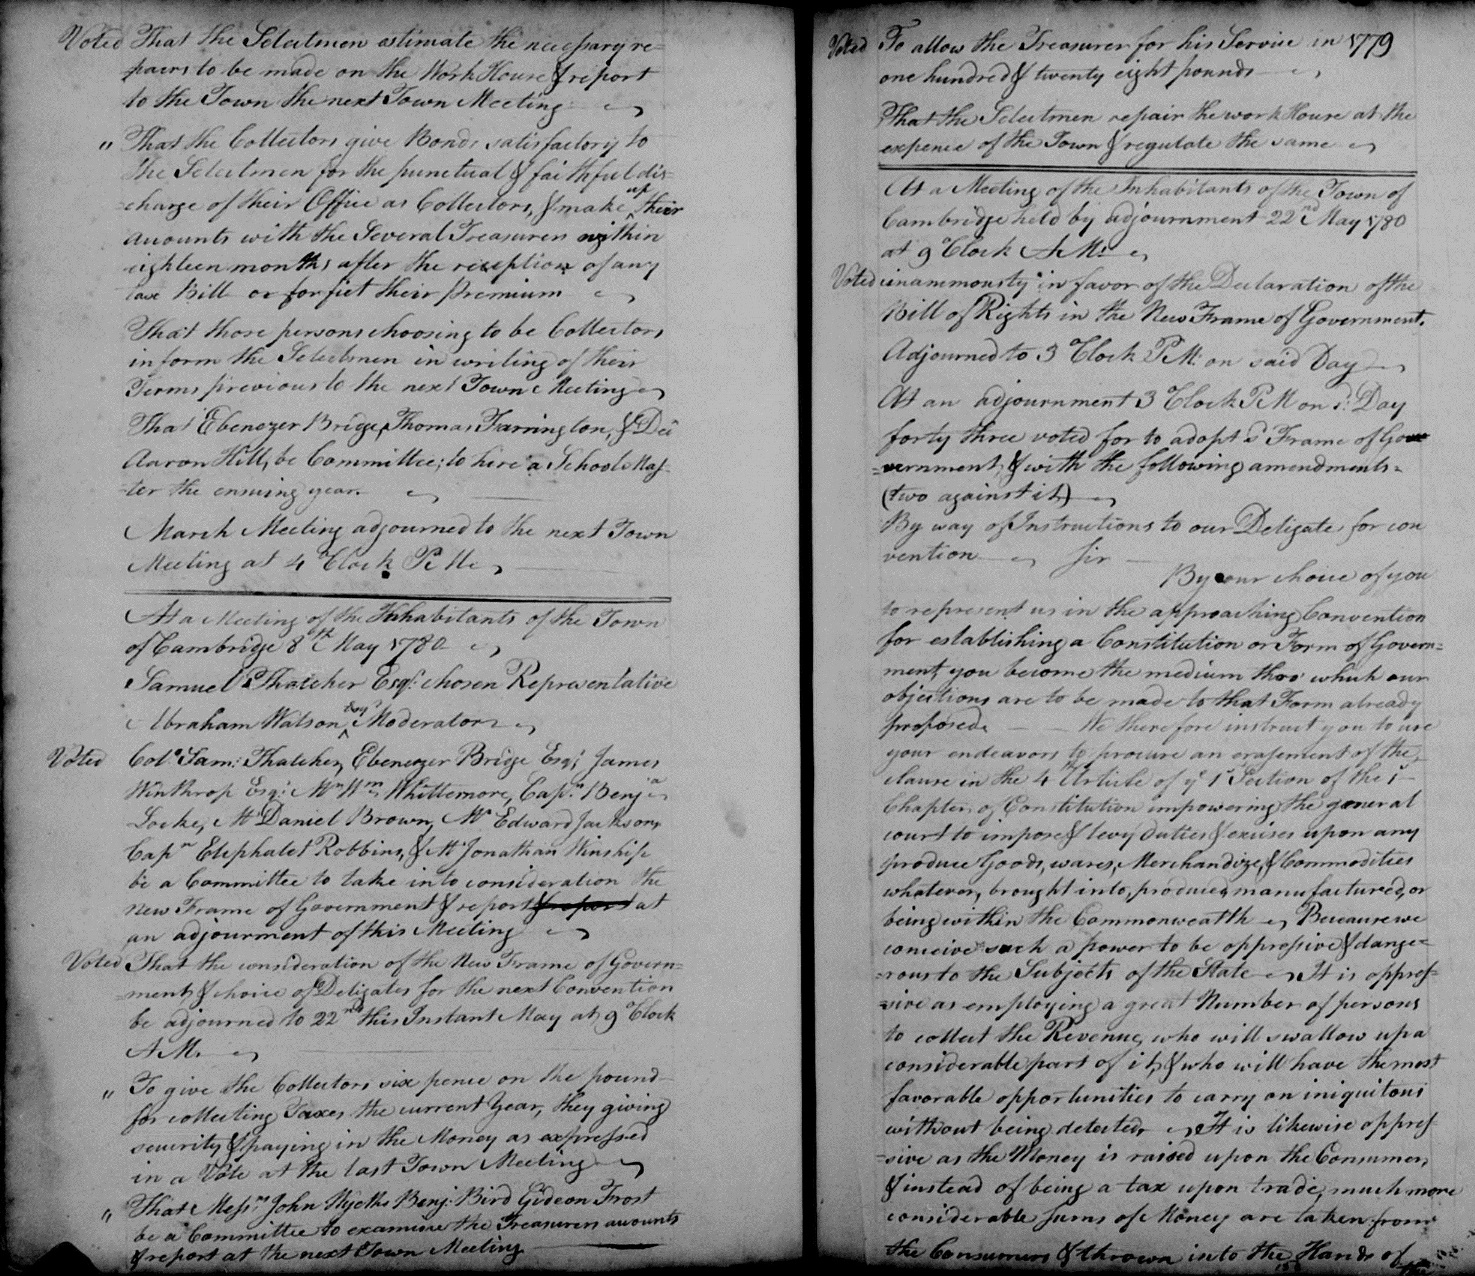 Voted That the Selectmen estimate the necessary re=
pairs to be made on the Work House & report
to the Town the next Town Meeting
" That the Collectors give Bonds satisfactory to
the Selectmen for the punctual & faithful dis=
=charge of their Office as Collectors, & make up their
accounts with the Several Treasurers within
eighteen months after the reception of any
tax Bill or forfiet their premium
That those persons choosing to be Collectors
inform the Selectmen in writing of their
Terms previous to the next Town Meeting
That Ebenezer Bridge, Thomas Farrington, & Dea
Aaron Hill, be Committee; to hire a School Mas-
-ter the ensuing year
March Meeting adjourned to the next Town
Meeting at 4 Clock P. M.
At a Meeting of the Inhabitants of the Town
of Cambridge 8th May 1780
Samuel P. Thatcher Esqr. chosen Representative
Abraham Watson Esqr. Moderator
Voted Colo. Sam: Thatcher, Ebenezer Bridge Esqr; James
Winthrop Esqr: Mr Wm. Whittemore, Capn. Benja.
Locke, Mr Daniel Brown, Mr Edward Jackson,
Capn Eliphalet Robbins, & Mr Jonathan Winship
be a Committee to take into consideration the
new Frame of Government & report & report at
an adjourment of this Meeting
Voted That the consideration of the New Frame of Govern=
=ment & choice of Deligates for the next Convention
be adjourned to 22nd this Instant May at 9 Clock
A M.
" To give the Collectors six pence on the pound
for collecting Taxes the current Year, they giving
security & paying in the Money as expressed
in a Vote at the last Town Meeting
" That Messrs John Wyeth Benj. Bird Gideon Frost
be a Committee to examine the Treasurers accounts
& report at the next Town Meeting
Voted To allow the Treasurer for his Service in 1779
one hundred & twenty eight pounds
That the Selectmen repair the work House at the
expence of the Town & regulate the same
At a Meeting of the Inhabitants of the Town of
Cambridge held by adjournment 22nd May 1780
at 9 Clock A M.
Voted unammously in favor of the Declaration of the
Bill of Rights in the New Frame of Government.
Adjourned to 3 Clock P. M. on said Day
At an adjournment 3 Clock P. M on sd. Day
forty three voted for to adopt sd Frame of Gov
=vernment, & with the following amendments
(two against it)
By way of Instructions to our Deligate for con
vention Sir
By our choice of you
to represent us in the approaching Convention
for establishing a Constitution or Form of Govern=
ment, you become the medium thro which our
objections are to be made to that Form already
proposed. We therefore instruct you to use
your endeavors to procure an erasement of the
clause in the 4th Article of ye 1st Section of the 1st
Chapter of Constitution impowering the general
court to impose & levy duties & excises upon any
produce Goods, wares, Merchandize, & Commodities
whatever, brought into, produced, manufactured, or
being within the Commonwealth Because we
conceive such a power to be oppressive & dange=
=rous to the Subjects of the State It is oppres=
=sive as employing a great Number of persons
to collect the Revenue, who will swallow up a
considerable part of it, & who will have the most
favorable opportunities to carry on iniquitous
without being detected. It is likewise oppres=
=sive as the Money is raised upon the Consumer,
& instead of being a tax upon trade, much more
considerable Sums of Money are taken from
the Consumers & thrown into the Hands of